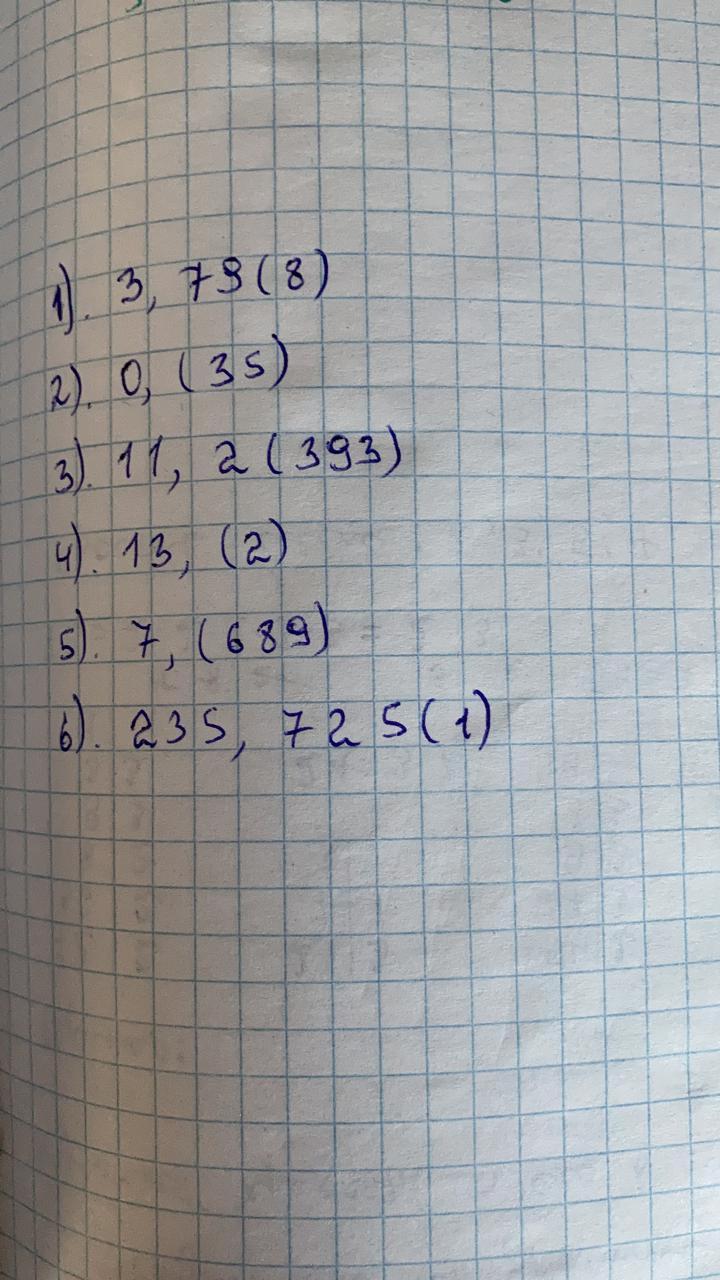 1). 3, 79(8)
2). 0, (35)
3). 11, 2(393)
4). 13, (2)
5). 7, (689)
6). 235, 725(1)